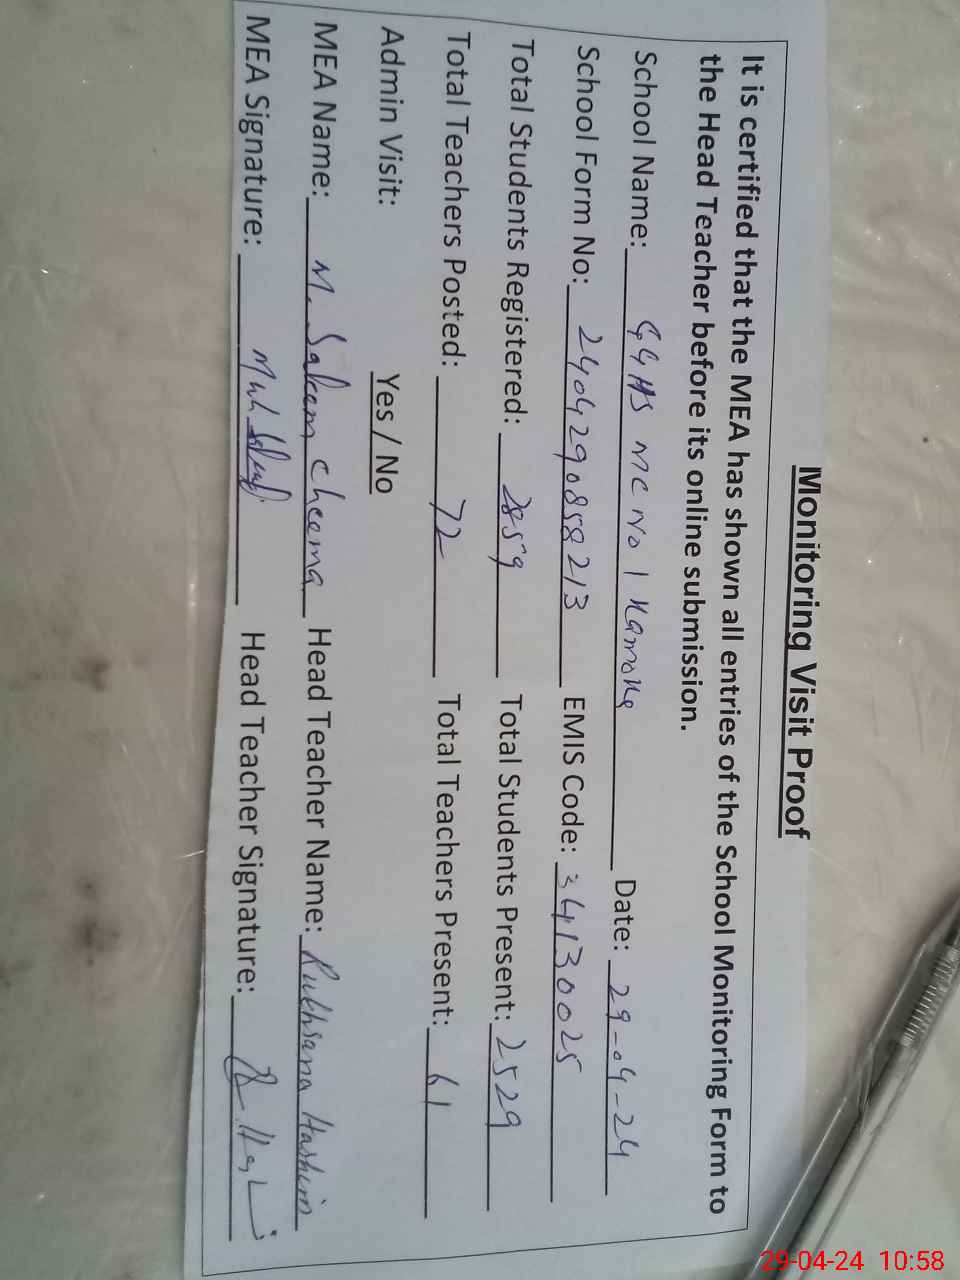 Monitoring Visit Proof
It is certified that the MEA has shown all entries of the School Monitoring Form to
the Head Teacher before its online submission.
School Name: GGHS MC No 1 Kamoke Date: 29-04-24
School Form No: 2404290858213 EMIS Code: 34130025
Total Students Registered: 2859 Total Students Present: 2529
Total Teachers Posted: 72 Total Teachers Present: 61
Admin Visit: Yes / No
MEA Name: M. Saleem Cheema Head Teacher Name: Rukhsana Hashim
MEA Signature: Head Teacher Signature:
29-04-24 10:58